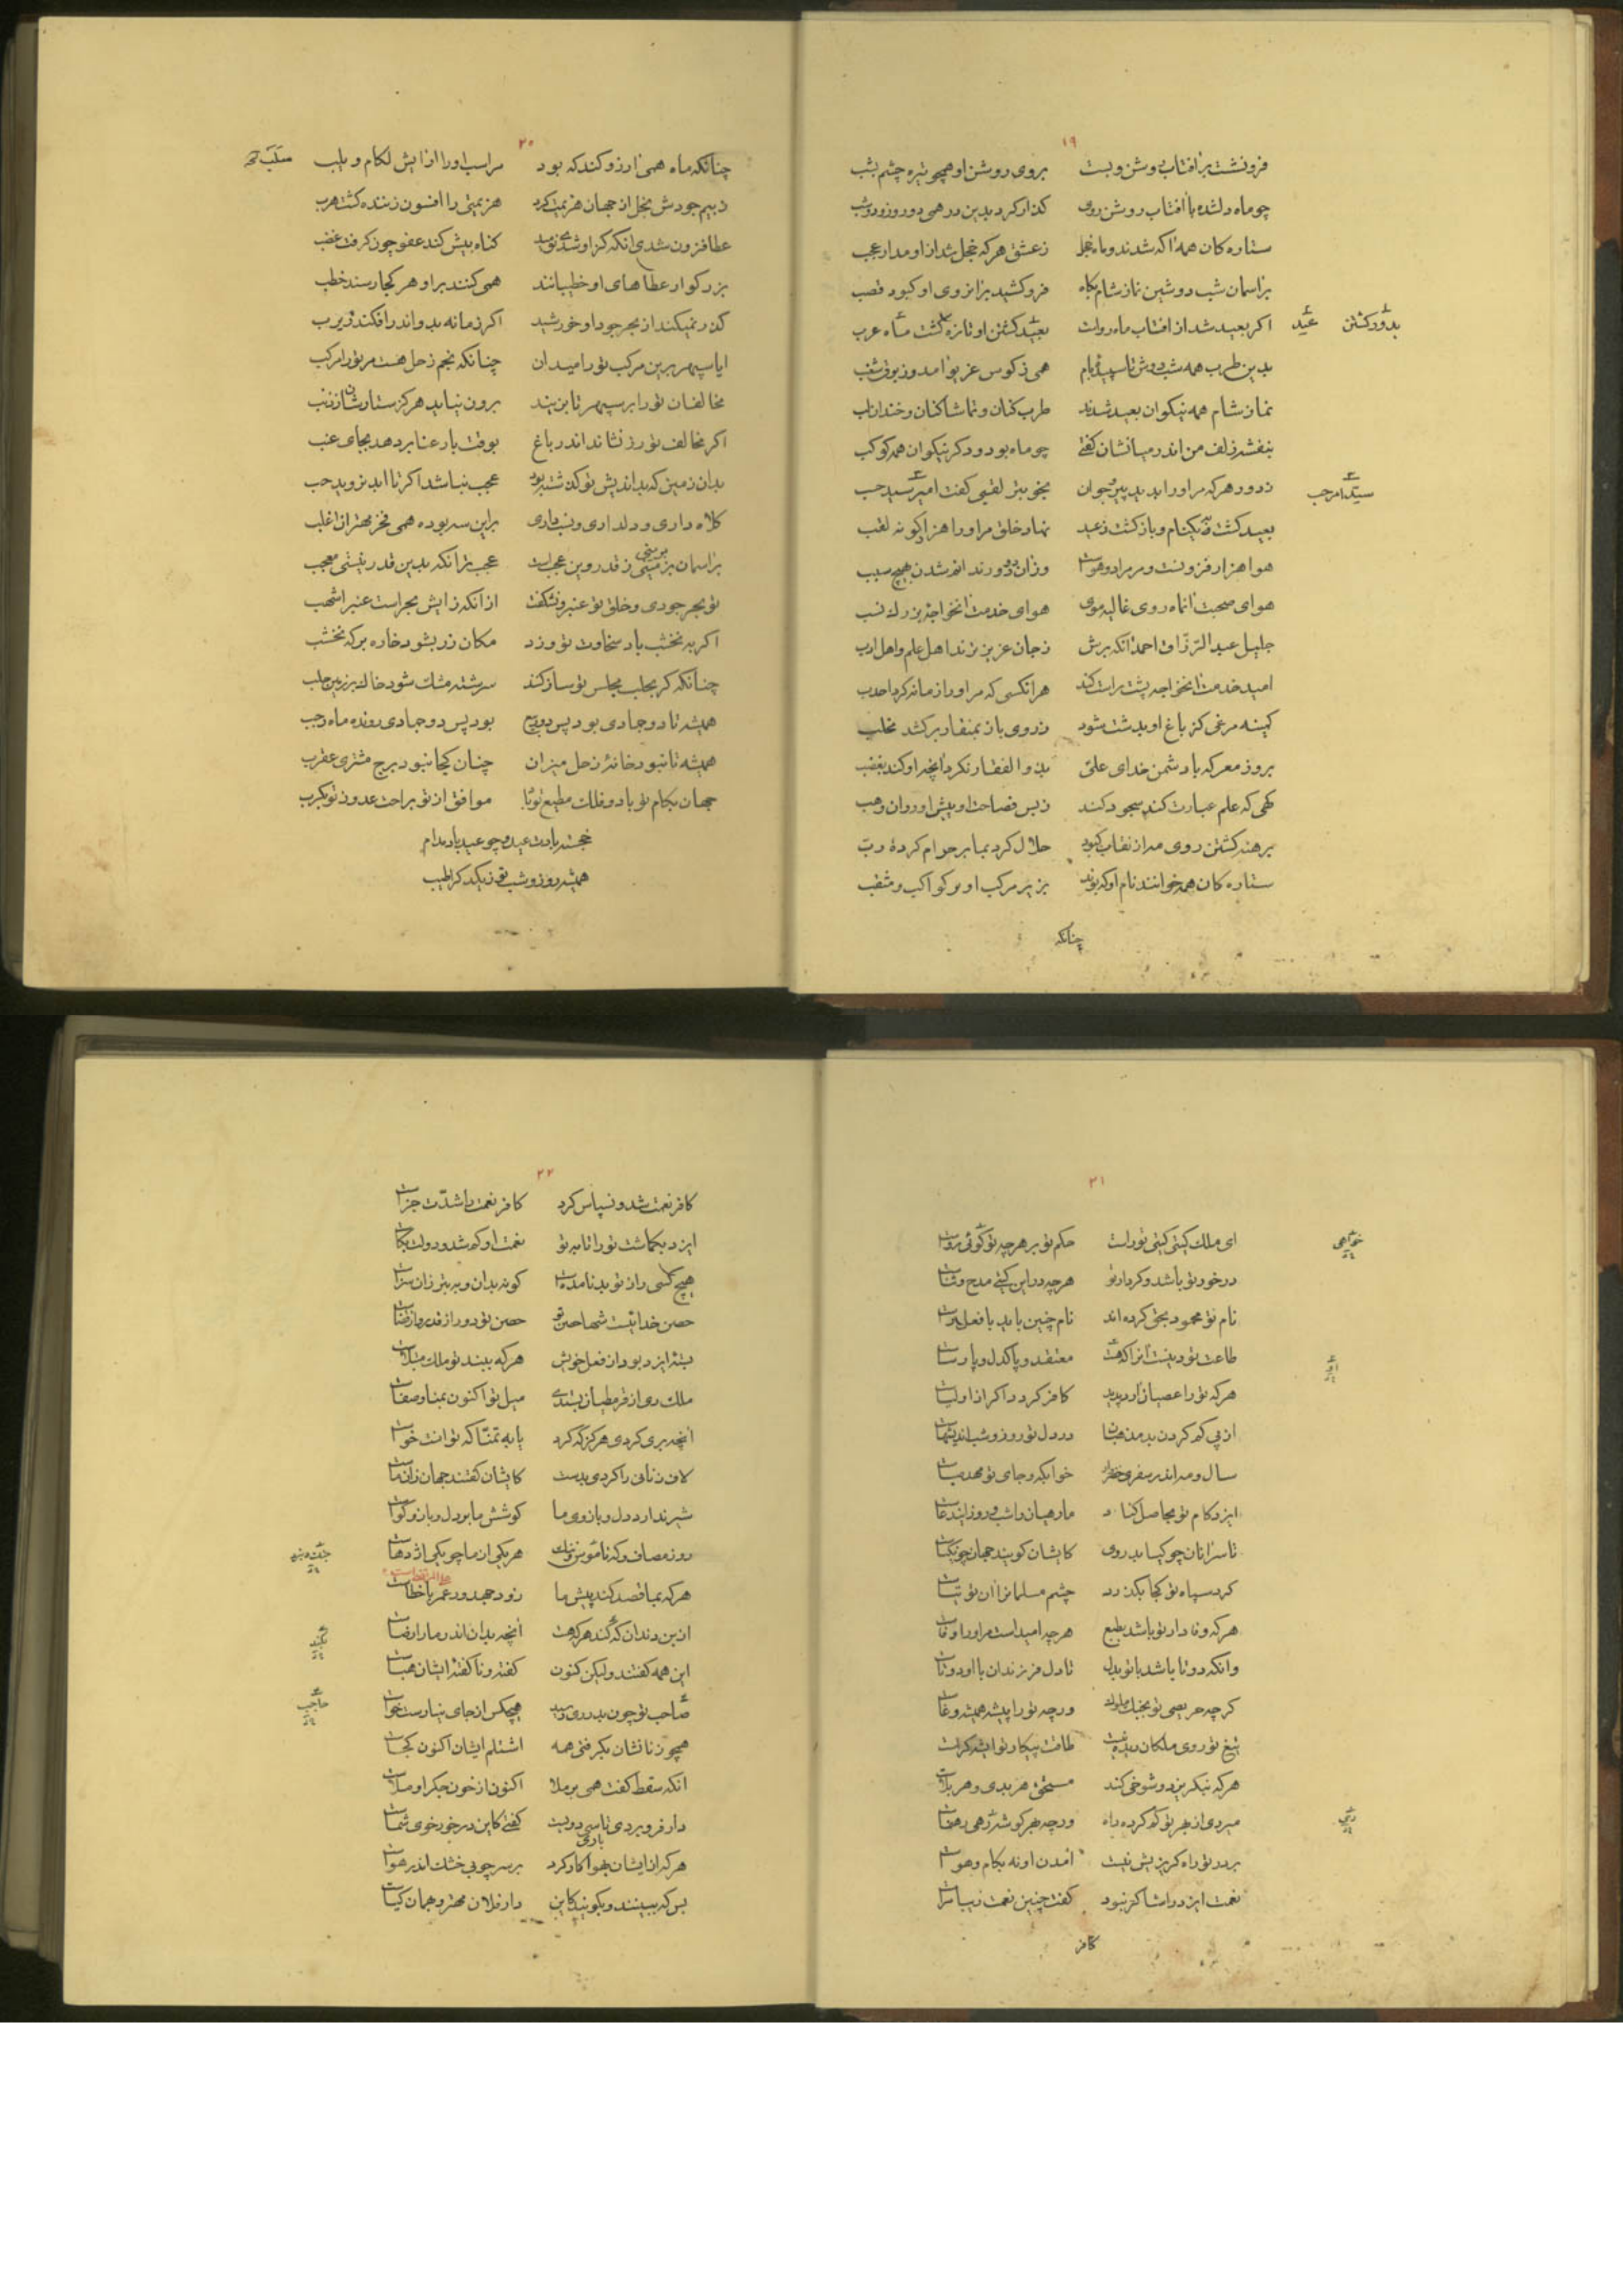 ۱۹
فرونشست بر افتاب وشن وبست بروی روشن او همچو تیره چشم بشب
چو ماه دلشده با افتاب روشن روی کذار کرد بدین در همی دو روز ودو شب
ستاره کان همه اکه شدند وماه خجل ز عشق هر که خجل شد از او مدار عجب
بر اسمان شب دوشین نماز شام بکاه فرو کشید بر ابروی او کبود قصب
اکر بعید شد از افتاب ماه رواست بعید کشتن او تازه کشت ماه عرب
بدور کشتن عید
بدین طرب همه شب دوش تا سپیده بام همی ز کوس غریو امد وز بوق شغب
نماز شام همه نیکوان بعید شدند طرب کنان و تماشا کنان وخندان لب
بنفشه زلف من اندر میانشان کفتی چو ماه بود ودکر نیکوان همه کوکب
ز دور هر که مر او را بدید پیر و جوان بخوبتر لقبی کفت امیر سید حب
بعید کشت به نیکنام وباز کشت ز عید نهاد خلق مر او را هزار کونه لقب
هوا هزار فزونست ومر مرا دو هواست وزان دو دور نداند شدن بهیچ سبب
هوای صحبت انماه روی غالیه موی هوای خدمت انخواجه بزرک نسب
جلیل عبد الرزاق احمد انکه برش ز جان عزیز ترند اهل علم واهل ادب
امید خدمت انخواجه پشت راست کند هر انکسی که مر او را زمانه کرد احدب
کمینه مرغی کز باغ او بدشت شود ز روی باز بمنقار بر کشد مخلب
بروز معرکه با دشمن خدای علی بذو الفقار نکرد انچه او کند بغضب
کهی که علم عبارت کند سجود کنند ز بس فصاحت او پیش او روان وهب
برهنه کشتن روی مه از نقاب کبود حلال کرد بما بر حرام کرده رب
ستاره کان همه خوانند نام او که بوند بزیر مرکب او بر کواکب و مثقب
چنانکه
۲۰
چنانکه ماه همی ارزو کند که بود مراسب او را ارایش لکام و یلب
ز بیم جودش بخل از جهان هزیمت کرد هزیمتی را افسون زننده کشت هرب
عطا فزون شدی انکه کز او شدی نومید کناه بیش کند عفو چون کرفت غضب
بزرکوار عطاهای او خطیبانند همی کنند بر او هر کجا رسند خطب
کذر نمیکند از بحر جود او خورشید اکر زمانه بدو اندر افکند زیرب
ایا سپهر برین مرکب تو را میدان چنانکه نجم زحل هست مر تو را مرکب
مخالفان تو را بر سپهر تا بزیند برون نیاید هرکز ستارشان ز ذنب
اکر مخالف تو رز نشاند اندر باغ بوقت بار عنا بر دهد بجای عنب
بدان زمین که بداندیش تو کذشته بود عجب نباشد اکر تا ابد نروید حب
کلاه داری و دلداری ونسب داری براین سه بوده همی فخر مهتران اغلب
بر اسمان بر مینی ز قدر وین عجب است عجب تر انکه بدین قدر نیستی معجب
تو بحر جودی وخلق تو عنبر ونشکفت از انکه زایش بحر است عنبر اشهب
اکر به نخشب باد سخاوت تو وزد مکان زر بشود خاره بر که نخشب
چنانکه کر بحلب مجلس تو ساز کند سرشته مشک شود خاک بر زمین حلب
همیشه تا دو جمادی بود پس دو ربیع بود پس دو جمادی رونده ماه رجب
همیشه تا نبود خانهٔ زحل میزان چنان کجا نبود برج مشتری عقرب
جهان بکام تو باد و فلک مطیع تو باد موافق از تو براحت عدو ز تو بکرب
خجسته بادت عید و چو عید باد مدام
همیشه روز و شب تو ز یکدکر اطیب
۲۱
ای ملک کیتی کیتی تو راست حکم تو بر هر چه تو کوئی رواست
در خور تو باشد وکردار تو هر چه در این کیتی مدح و ثناست
نام تو محمود بحق کرده اند نام چنین باید با فعل راست
طاعت تو دینست انرا که هست معتقد و پاکدل و پارساست
هر که تو را عصیان ارد پدید کافر کردد اکر از اولیاست
از پی کم کردن بد مذهبان در دل تو روز وشب اندیشهاست
سال و مه اندر سفری خضر وار خوابکه و جای تو مهد صباست
ایزد کام تو بحاصل کناد ما رهیان را شب و روز ایندعاست
تا سر انان چو کیا بدروی کایشان کویند جهان چون کیاست
کرد سپاه تو کجا بکذرد چشم مسلمانرا ان توتیاست
هر که وفادار تو باشد بطبع هر چه امید است مر او را وفاست
وانکه دوتا باشد با تو بدل تا دل فرزندان با او دوتاست
کر چه حریصی تو بجنک ملوک ور چه تو را پیشه همیشه وغاست
تیغ تو روی ملکان دیده نیست طاقت پیکار تو ایشه کراست
هر که نبکریزد وشوخی کند مستحق هر بدی وهر بلاست
مبردی از بهر تو کم کرده راه ور چه بهر کوشه رهی رهنماست
بر در تو راه کریز بش نیست امدن او نه بکام وهواست
نعمت ایزد را شاکر نبود کفت چنین نعمت زیبا مراست
کافر
۲۲
کافر نعمت شد و نسپاس کرد کافر نعمت را شدت جزاست
ایزد بکماشت تو را تا به تو نعمت او کم شد ودولت بکاست
هیچ کسی را ز تو بد نامده است کو نه بدان وبه بتر زان سزاست
حصن خدائیست شها حصن تو حصن تو دور از قدر و از قضاست
بستهٔ ایزد بود از فعل خویش هر که ببند تو ملک مبتلاست
ملک ری از قرمطیان بستدی میل تو اکنون بمنا وصفاست
انچه بری کردی هرکز که کرد یا به تمنا که توانست خواست
لاف زنانی را کردی بدست کایشان کفتند جهان زان ماست
شیر ندارد دل و بازوی ما کوشش ما بر دل و بازو کواست
روز مصاف و که ناموس و ننک هر یکی از ما چو یکی اژدهاست
هر که بما قصد کند پیش ما زود جهد ور عمر با خطاست
از بن دندان کند هر که هست انچه بدان اندر ما را رضاست
این همه کفتند ولیکن کنون کفته و نا کفتهٔ ایشان هباست
صاحب تو چون بدر ری رسید هیچکس از جای نیارست خواست
همچو زنانشان بکرفتی همه اشتلم ایشان اکنون کجاست
انکه سقط کفت همی بر ملا اکنون از خون جکر او ملاست
دار فرو بردی تا سی دویست کفتی کاین در خور خوی شماست
هر که از ایشان بهوا کار کرد بر سر چوبی خشک اندر هواست
بس که ببینند و بکویند کاین دار فلان مهتر و بهمان کیاست